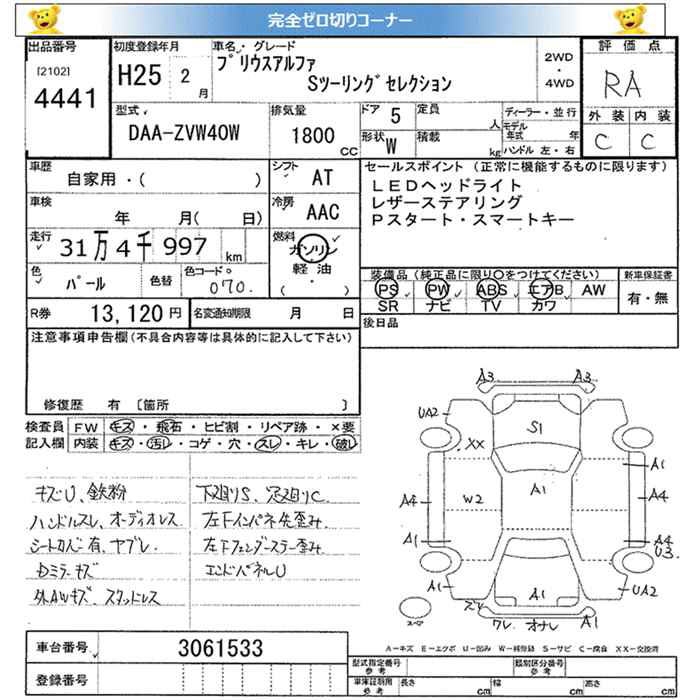 完全ゼロ切りコーナー
出品番号
[2102]
4441
初度登録年月
H25 2 月
車名・グレード
プリウスアルファ
Sツーリングセレクション
2WD
・
4WD
評価点
RA
外装 内装
C C
型式
DAA-ZVW40W
排気量
1800 CC
ドア 5
形状 W
定員 人
積載 kg
ディーラー・並行
モデル年式 年
ハンドル 左・右
車歴
自家用・( )
シフト AT
車検
年 月( 日)
冷房 AAC
走行
31万4千997 km
燃料
ガソリン
軽油
( ・ )
色
パール
色替
色コード
070.
R券 13,120 円
名変通知期限 月 日
セールスポイント (正常に機能するものに限ります)
LEDヘッドライト
レザーステアリング
Pスタート・スマートキー
装備品(純正品に限り○をつけてください)
PS PW ABS エアB AW
SR ナビ TV カワ
新車保証書
有・無
後日品
注意事項申告欄(不具合内容等は具体的に記入して下さい)
修復歴 有 [箇所 ]
検査員記入欄
FW キズ・飛石・ヒビ割・リペア跡・×要
内装 キズ・汚レ・コゲ・穴・スレ・キレ・破レ
キズU、鉄粉
ハンドルスレ、オーディオレス
シートカバー有、ヤブレ
Dミラーキズ
外AWキズ、スタッドレス
下廻りS、足廻りC
左下インパネ先歪み
左下フェンダーステー歪み
エンドパネルU
A3 A3
UA2
S1
XX
A1
W2
A1
A4
A4
A1
A4
U3
A1
A1
UA2
ワレ オナレ A1
A=キズ E=エクボ U=凹み W=補修跡 S=サビ C=腐食 XX=交換済
車台番号 3061533
登録番号
型式指定番号 参考
類別区分番号 参考
車庫証明用 参考
長さ cm
幅 cm
高さ cm